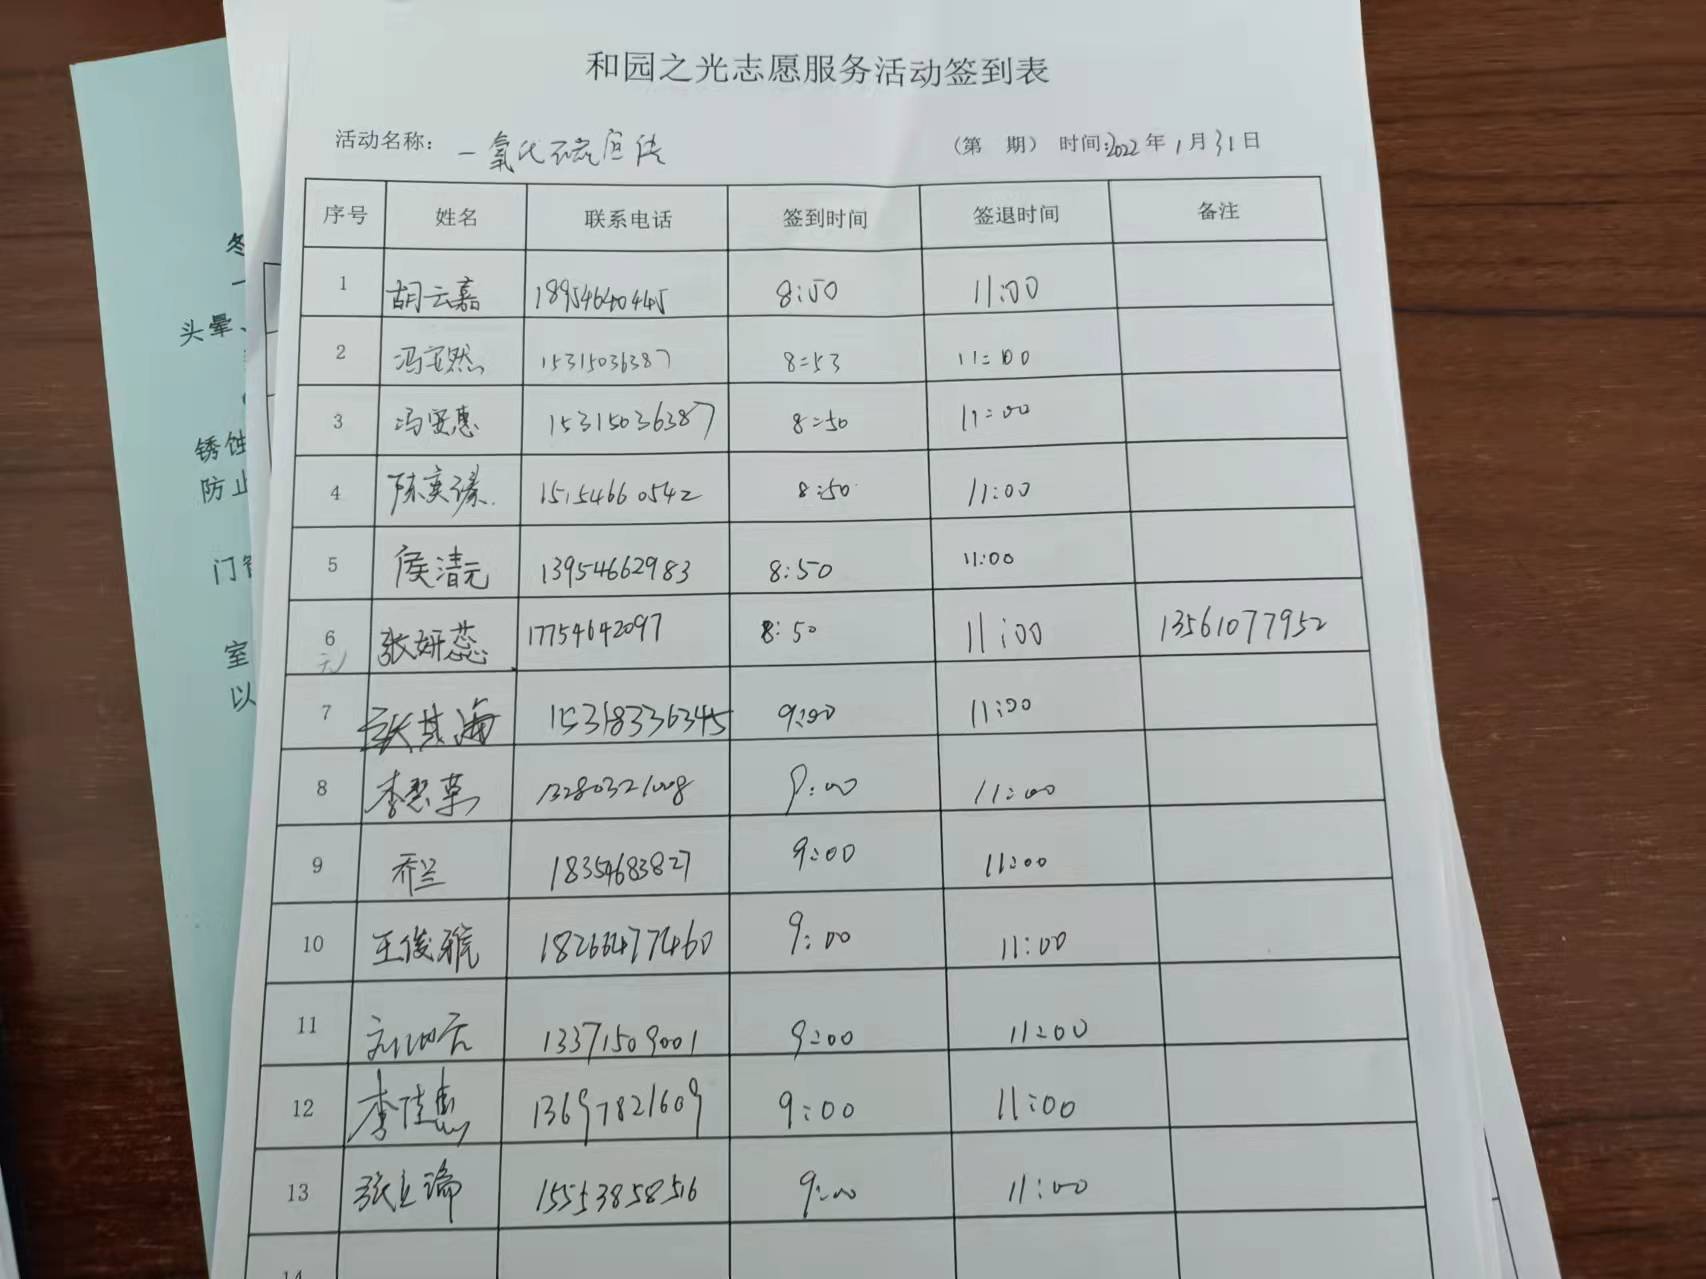 和园之光志愿服务活动签到表
活动名称: 一氧化碳宣传 (第 期) 时间:2022年1月31日
序号 姓名 联系电话 签到时间 签退时间 备注
1 胡云嘉 18954640445 8:50 11:00
2 冯安然 15315036387 8:53 11:00
3 冯安惠 15315036387 8:50 11:00
4 陈奕 15154660542 8:50 11:00
5 侯清元 13954662983 8:50 11:00
6 张妍蕊 17754642097 8:50 11:00 13561077952
元
7 张其海 15318336345 9:00 11:00
8 李 13280321008 9:00 11:00
9 乔兰 18354683827 9:00 11:00
10 王俊雅 18266477460 9:00 11:00
11 刘 13371509001 9:00 11:00
12 李佳惠 13697821609 9:00 11:00
13 张立 15553858516 9:00 11:00
14
冬
一
头晕、
锈蚀
防止
门窗
室
以